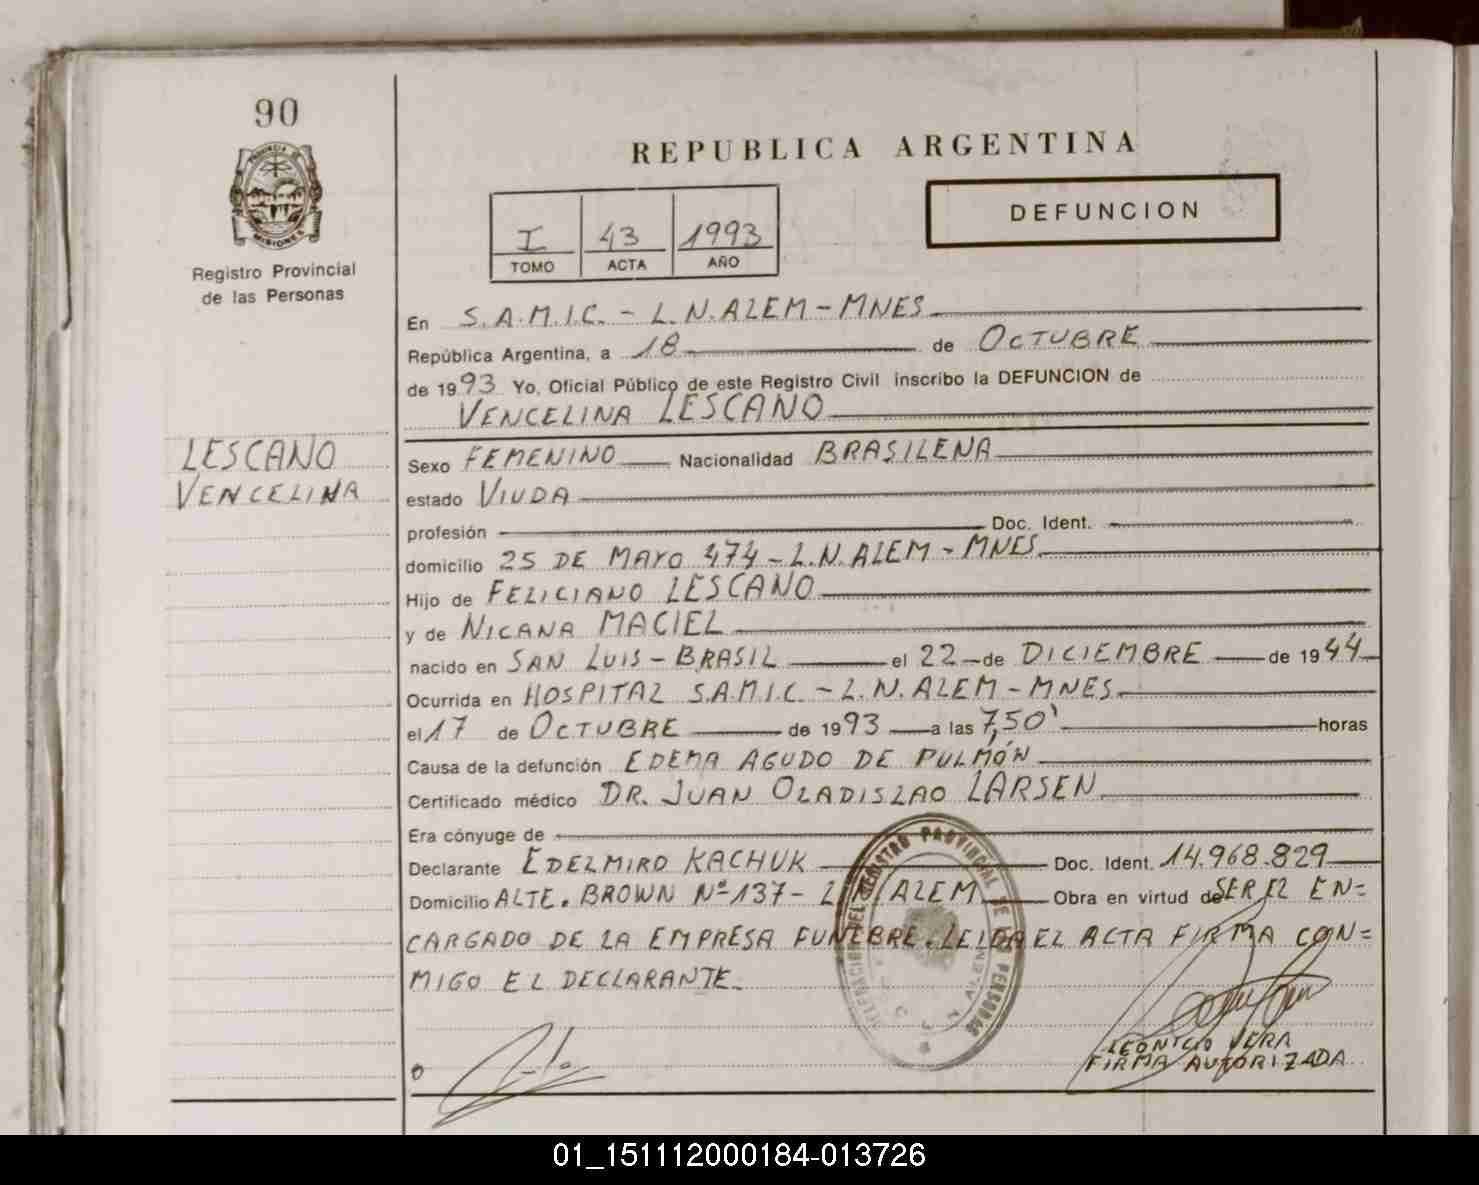 90
PROVINCIA DE
MISIONES
Registro Provincial
de las Personas
LESCANO
VENCELINA
REPUBLICA ARGENTINA
I 43 1993
TOMO ACTA AÑO
DEFUNCION
En S.A.M.I.C. - L.N.ALEM - MNES
República Argentina, a 18 de OCTUBRE
de 1993 Yo, Oficial Público de este Registro Civil inscribo la DEFUNCION de
VENCELINA LESCANO
Sexo FEMENINO Nacionalidad BRASILENA
estado VIUDA
profesión Doc. Ident.
domicilio 25 DE MAYO 474 - L.N.ALEM - MNES
Hijo de FELICIANO LESCANO
y de NICANA MACIEL
nacido en SAN LUIS - BRASIL el 22 de DICIEMBRE de 1944
Ocurrida en HOSPITAL S.A.M.I.C. - L.N.ALEM - MNES.
el 17 de OCTUBRE de 1993 a las 7,50' horas
Causa de la defunción EDEMA AGUDO DE PULMÓN
Certificado médico DR. JUAN OLADISLAO LARSEN
Era cónyuge de
Declarante EDELMIRO KACHUK Doc. Ident. 14.968.829
Domicilio ALTE. BROWN Nº 137 - L. ALEM Obra en virtud de SER EL EN=
CARGADO DE LA EMPRESA FUNEBRE. LEIDA EL ACTA FIRMA CON=
MIGO EL DECLARANTE.
DELEGACION DEL REGISTRO PROVINCIAL DE LAS PERSONAS
N. ALEM
LEONICIO VERA
FIRMA AUTORIZADA
01_151112000184-013726